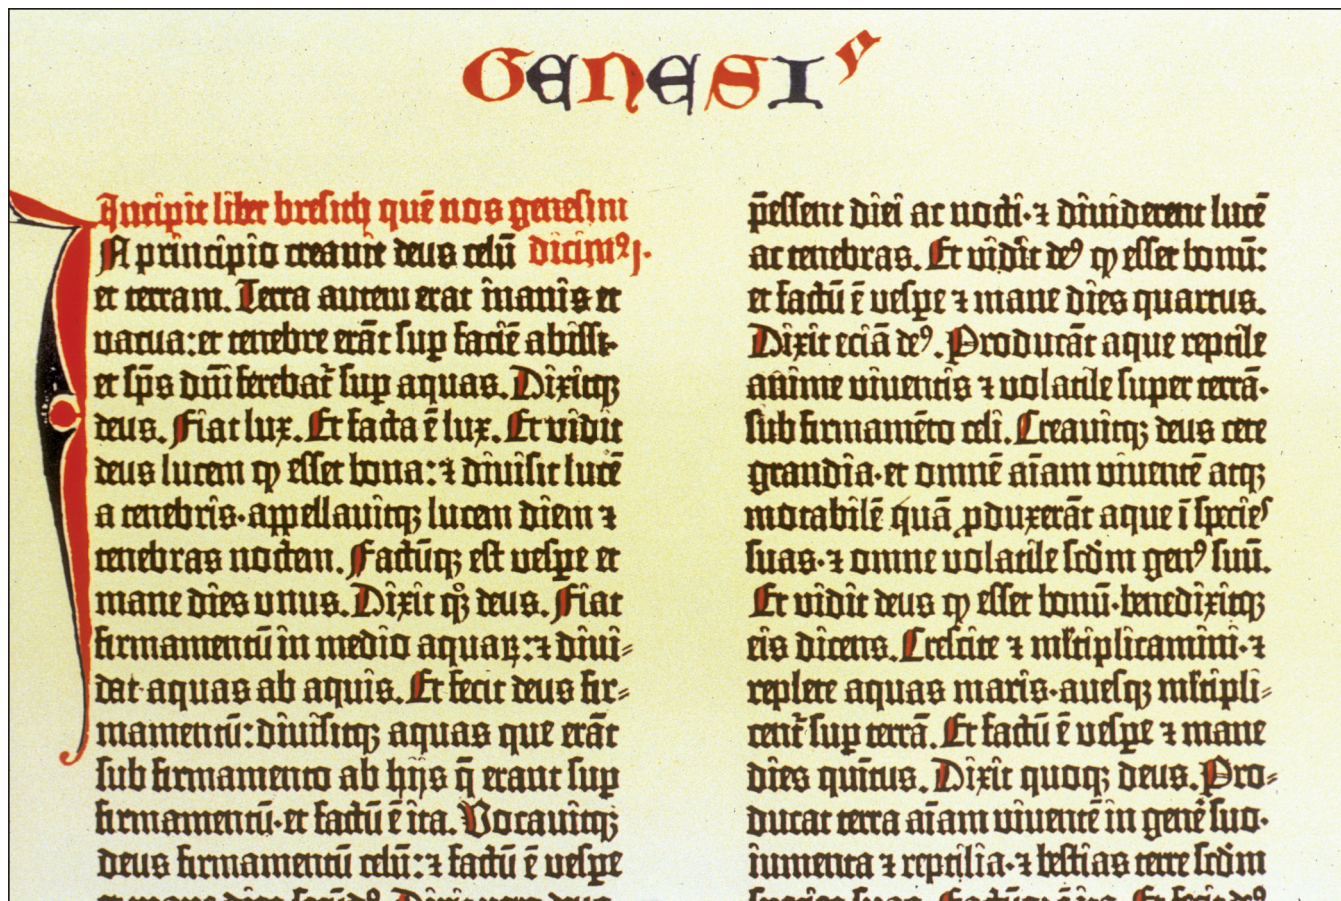 GENESIS
Incipit liber bresith quē nos genesim
In principio creauit deus celū dicimꝰ.
et terram. Terra autem erat inanis et
vacua: et tenebre erāt sup faciē abissi.
et sp̄s dn̄i ferebat᷑ sup aquas. Dixitqꝫ
deus. Fiat lux. Et facta ē lux. Et vidit
deus lucem ꝙ esset bona: ⁊ diuisit lucē
a tenebris. appellauitqꝫ lucem diem ⁊
tenebras noctem. Factūqꝫ est vespe et
mane dies vnus. Dixit qꝫ deus. Fiat
firmamentū in medio aquaꝝ: ⁊ diui-
dat aquas ab aquis. Et fecit deus fir-
mamentū: diuisitqꝫ aquas que erāt
sub firmamento ab hijs q̄ erant sup
firmamentū. et factū ē ita. Vocauitqꝫ
deus firmamentū celū: ⁊ factū ē vespe
p̄essent diei ac nocti. ⁊ diuiderent lucē
ac tenebras. Et vidit deꝰ ꝙ esset bonū:
et factū ē vespe ⁊ mane dies quartus.
Dixit eciā deꝰ. Producāt aque reptile
anime viuentis ⁊ volatile super terrā.
sub firmamēto celi. Creauitqꝫ deus cete
grandia. et omnē aīam viuentē atqꝫ
motabilē quā ꝓduxerāt aque ī species
suas. ⁊ omne volatile scdm genꝰ suū.
Et vidit deus ꝙ esset bonū. benedixitqꝫ
eis dicens. Crescite ⁊ ml̄tiplicamini. ⁊
replete aquas maris. auesqꝫ ml̄tipli-
cent᷑ sup terrā. Et factū ē vespe ⁊ mane
dies quītus. Dixit quoqꝫ deus. Pro-
ducat terra aīam viuentē in gene̅ suo.
iumenta ⁊ reptilia. ⁊ bestias terre scdm